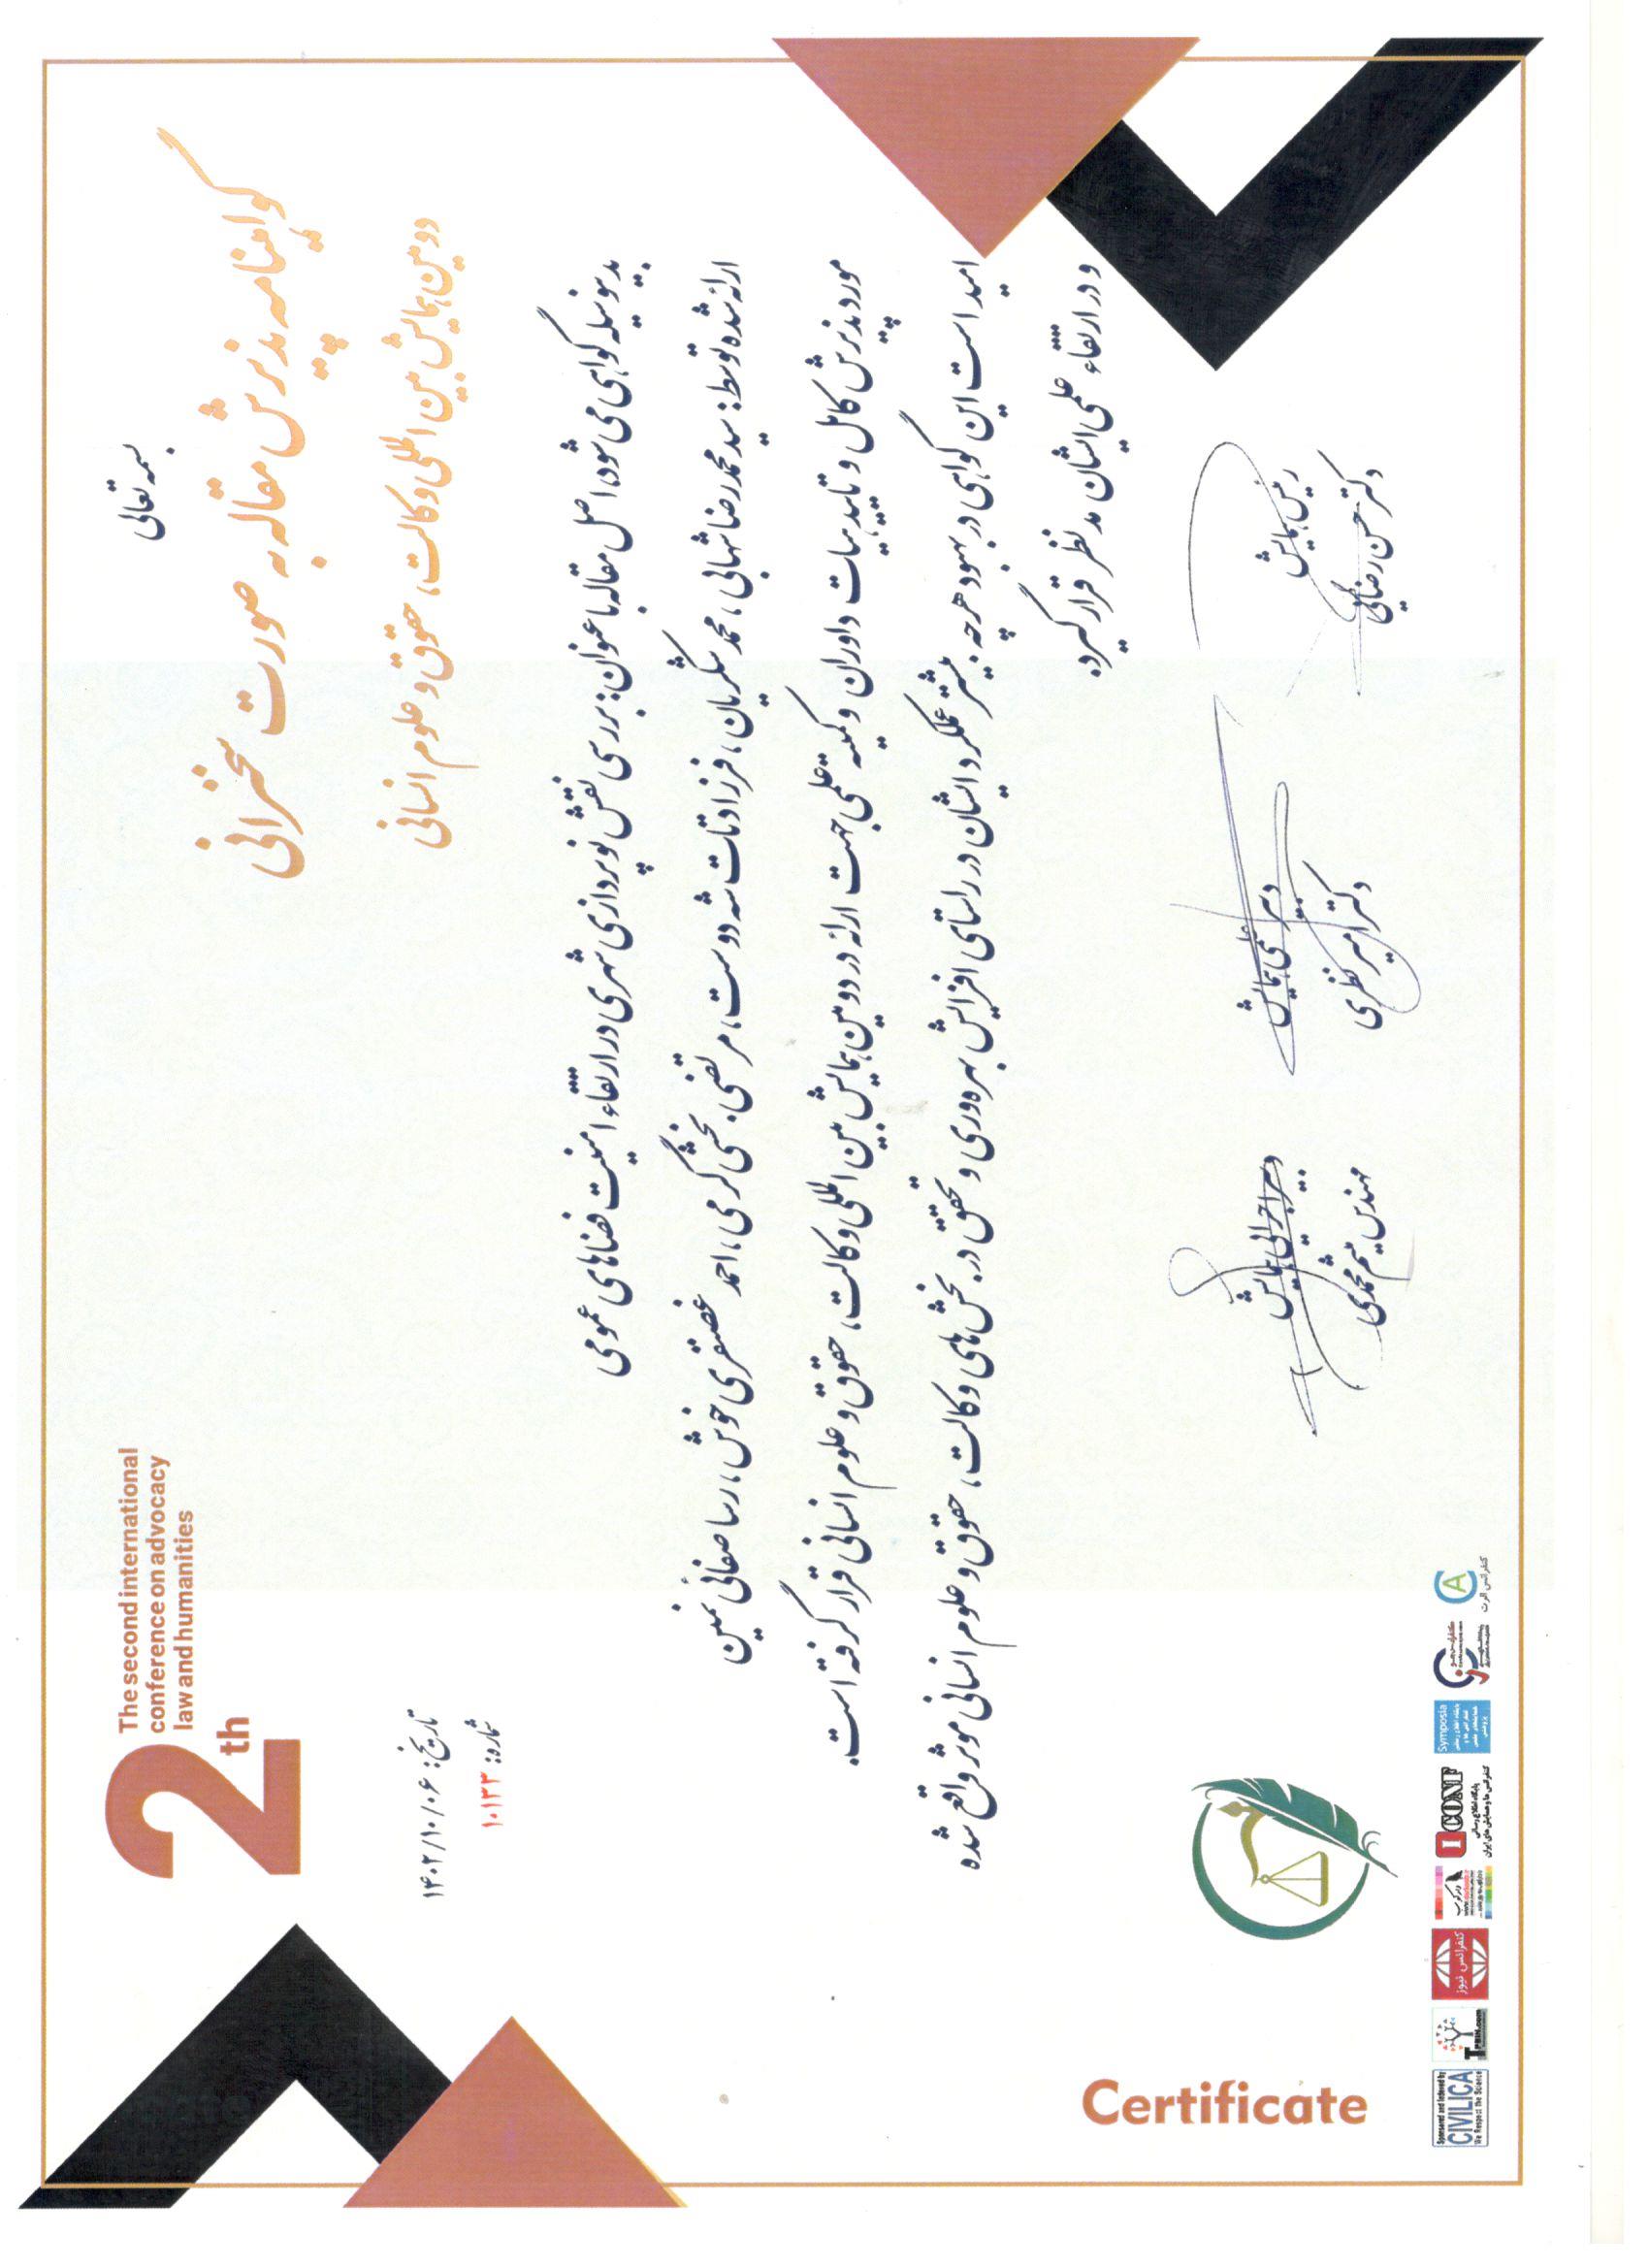 The second international
conference on advocacy
law and humanities
2th
بسمه تعالی
گواهینامه پذیرش مقاله به صورت سخنرانی
دومین همایش بین المللی وکالت، حقوق و علوم انسانی
تاریخ: ۱۴۰۲/۱۰/۰۶
شماره: ۱۰۱۲۳
بدینوسیله گواهی می شود، اصل مقاله با عنوان: بررسی نقش نورپردازی شهری در ارتقاء امنیت فضاهای عمومی
ارائه شده توسط: سید محمدرضا شهابی، محمد شکریان، فرزاد تات شه دوست، مرتضی بخشی کرمی، احمد غضنفری خوش، رسا صفائی نمین
مورد پذیرش کامل و تایید هیات داوران و کمیته علمی جهت ارائه در دومین همایش بین المللی وکالت، حقوق و علوم انسانی قرار گرفته است.
امید است این گواهی در بهبود هرچه بیشتر عملکرد ایشان در راستای افزایش بهره وری و تحقق در بخش های وکالت، حقوق و علوم انسانی موثر واقع شده
و در ارتقاء علمی ایشان مد نظر قرار گیرد.
رئیس همایش
دکتر حسن رضائی
دبیر علمی همایش
دکتر امیر نظری
دبیر اجرائی همایش
مهندس میثم محمدی
Certificate
Sponsored and Indexed by
CIVILICA
We Respect the Science
TPBIN.com
کنفرانس نیوز
ICONF
پایگاه اطلاع رسانی
کنفرانس ها و همایش های ایران
Symposia
کنفرانس الرت